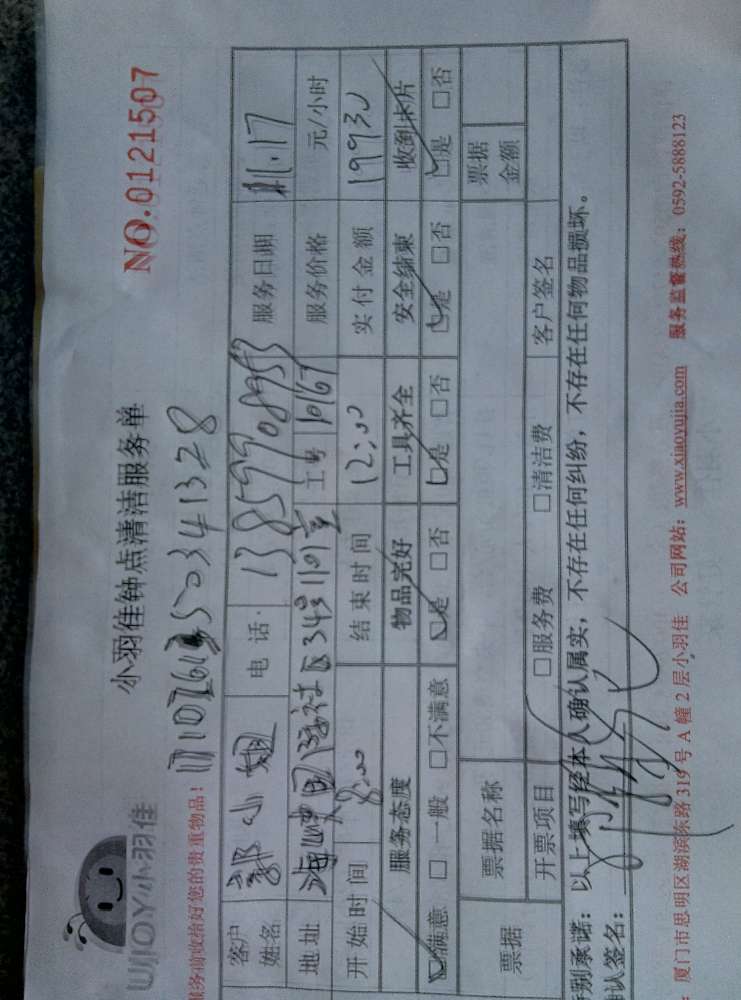 UJJOY小羽佳
小羽佳钟点清洁服务单
NO.0121507
服务前收拾好您的贵重物品!
客户姓名 郭小姐 电话: 13859908953 服务日期 11.17
地址 工号 10167 服务价格 元/小时
开始时间 8:00 结束时间 12:00 实付金额
服务态度 物品完好 工具齐全 安全结束 收到卡片
☑满意 □一般 □不满意 ☑是 □否 ☑是 □否 ☑是 □否 ☑是 □否
票据 票据名称 票据金额
开票项目 □服务费 □清洁费 客户签名
特别承诺: 以上填写经本人确认属实, 不存在任何纠纷, 不存在任何物品损坏。
确认签名:
厦门市思明区湖滨东路319号A幢2层小羽佳 公司网站: www.xiaoyujia.com 服务监督热线: 0592-5888123